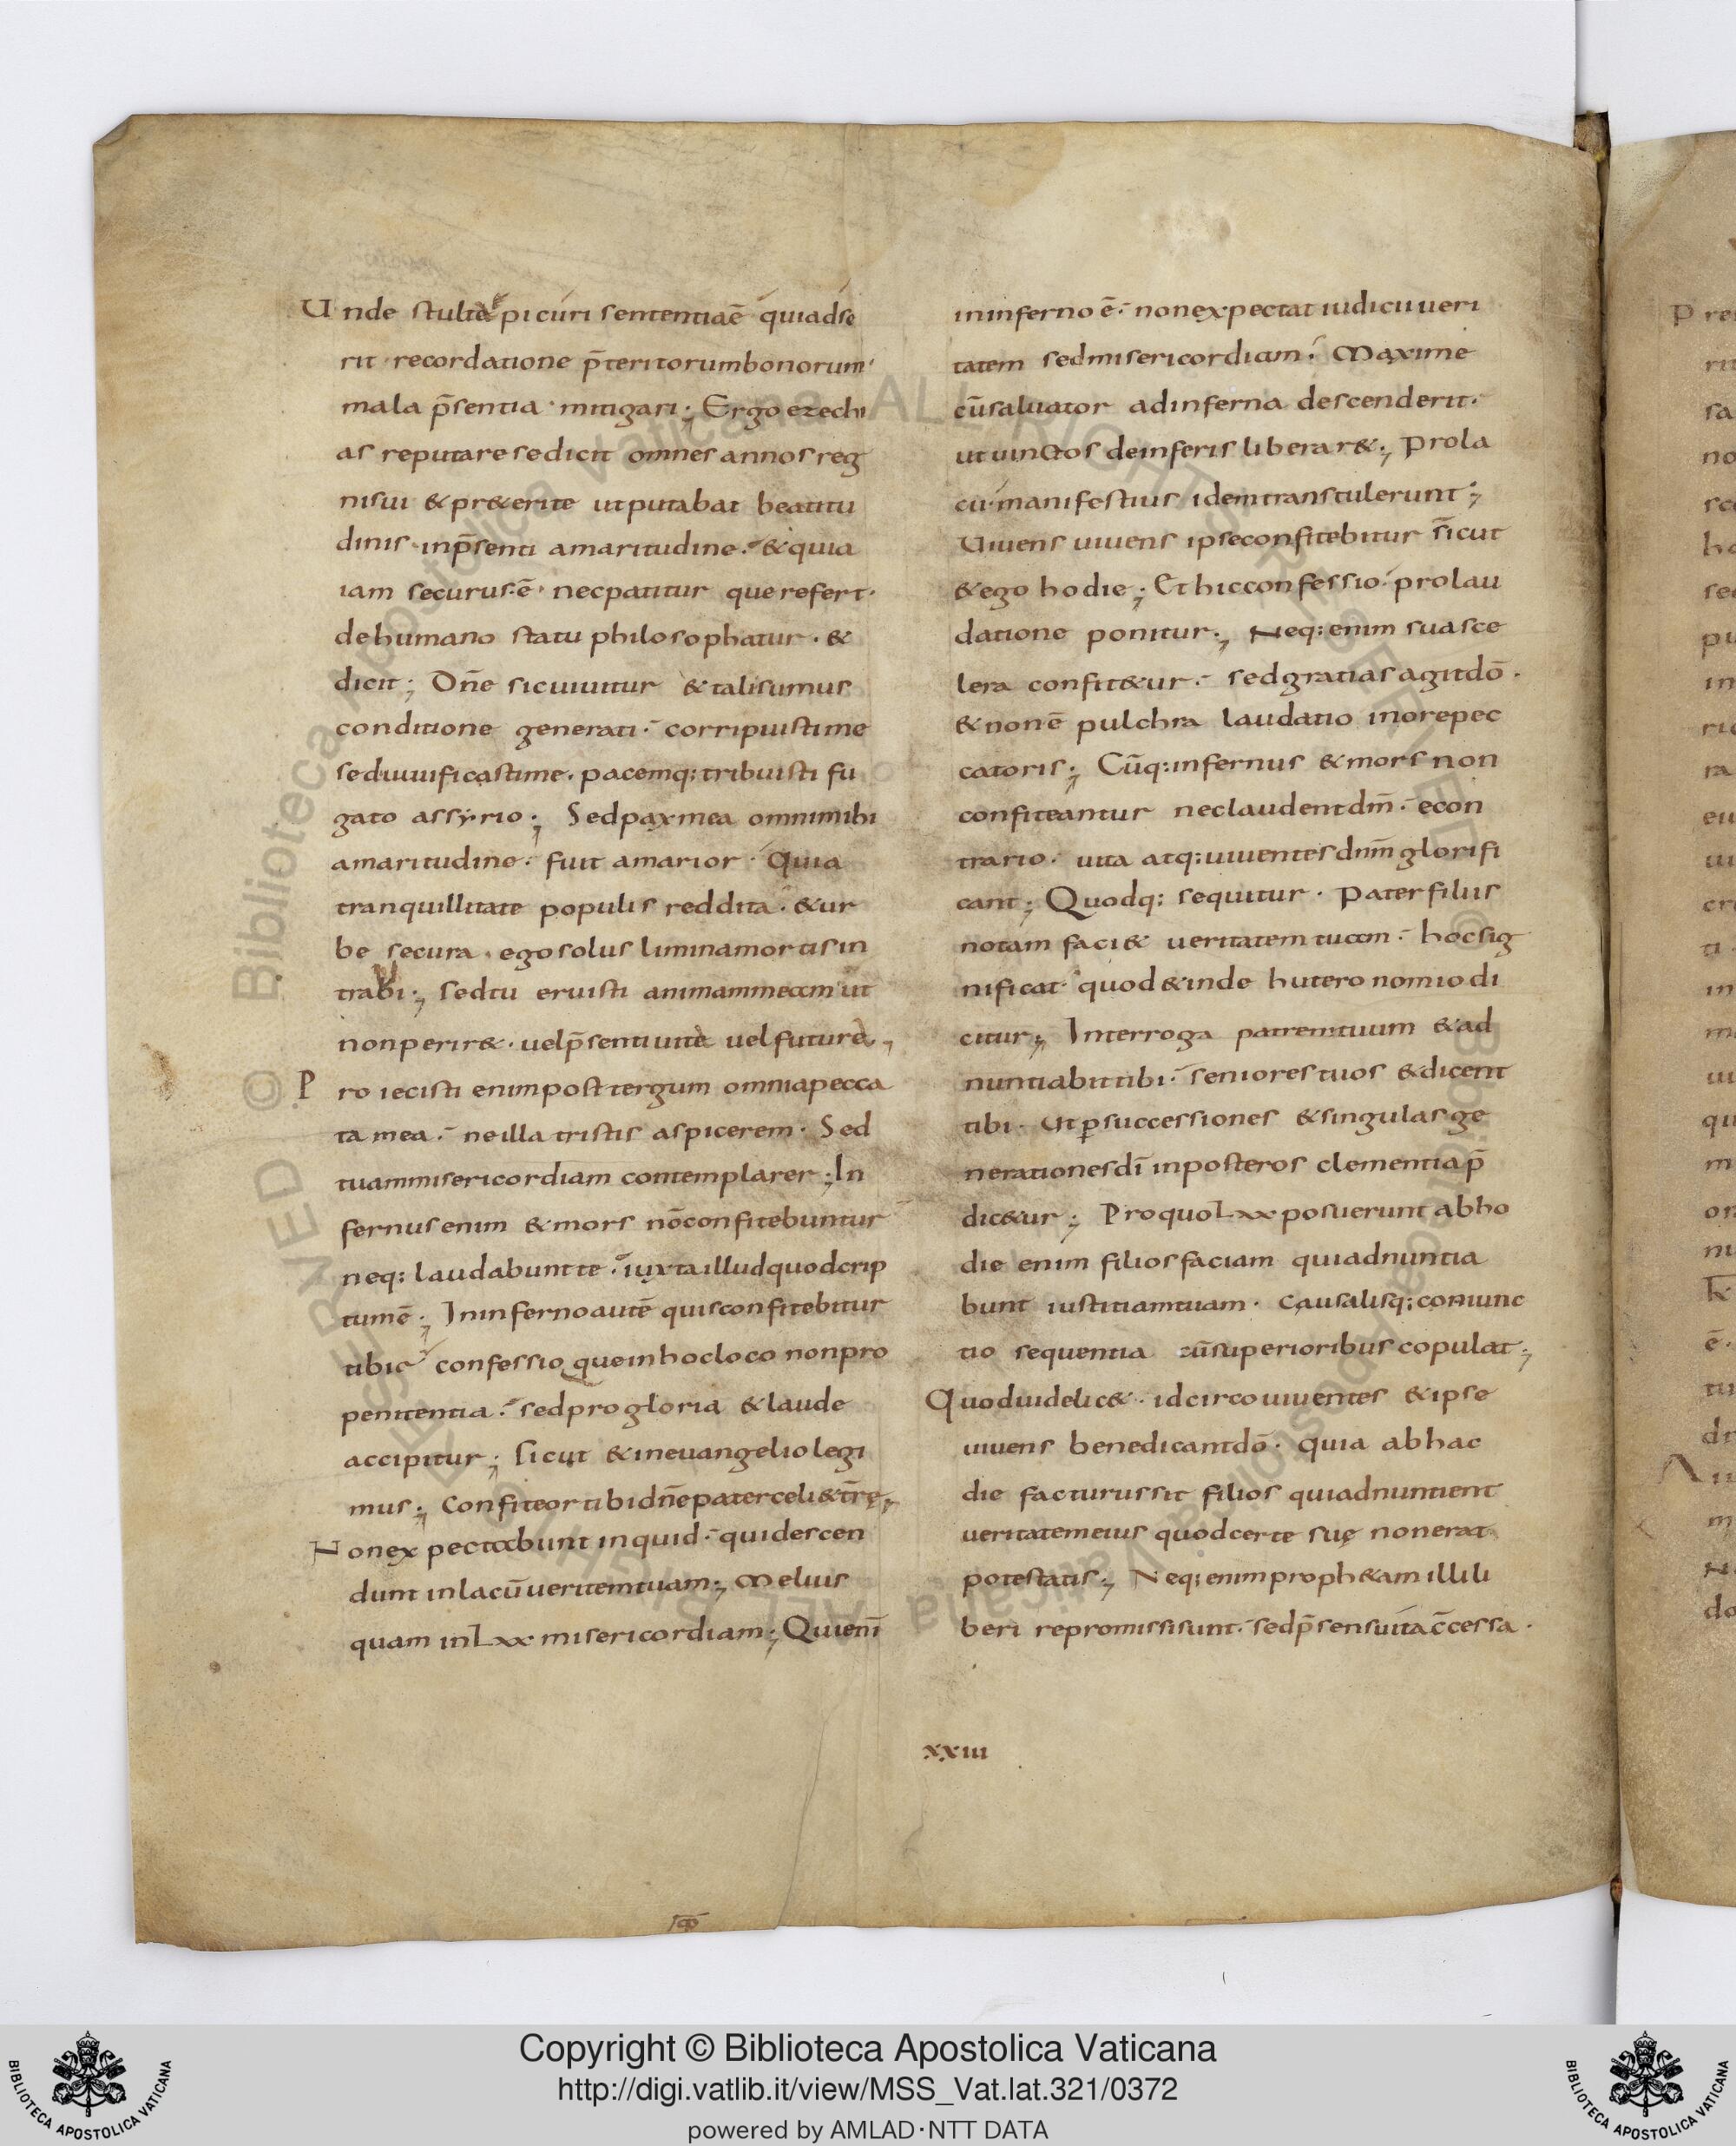 Unde stulta epicuri sententia ē qui adse
rit · recordatione p̄teritorum bonorum ·
mala p̄sentia · mitigari ; Ergo ezechi
as reputare se dicit omnes annos reg
ni sui & pr&erite ut putabat beatitu
dinis · in p̄senti amaritudine · & quia
iam securus ē · nec patitur que refert ·
de humano statu philosophatur · &
dicit ; Dn̄e si c uiuitur & talis sumus
conditione generati · corripuisti me
sed uiuificasti me · pacemq; tribuisti fu
gato assyrio ; Sed pax mea omni mihi
amaritudine · fuit amarior · Quia
tranquillitate populis reddita · & ur
be secura · ego solus limina mortis in
trabi ; sed tu eruisti animam meam ut
non perir& · uel p̄senti uite uel future ;
Proiecisti enim post tergum omnia pecca
ta mea · ne illa tristis aspicerem · Sed
tuam misericordiam contemplarer ; In
fernus enim & mors nō confitebuntur
neq; laudabunt te · iuxta illud quod crip
tum ē ; In inferno autē quis confitebitur
tibi confessio que in hoc loco non pro
penitentia · sed pro gloria & laude
accipitur ; sicut & in euangelio legi
mus ; Confiteor tibi dn̄e pater celi & tr̄ę ;
Non expectabunt inquid · qui descen
dunt in lacū ueritem tuam ; Melius
quam in Lxx misericordiam ; Qui enī
in inferno ē · non expectat iudicii ueri
tatem sed misericordiam · Maxime
cū saluator ad inferna descenderit ·
ut uinctos de inferis liberar& ; Prola
cu · manifestius idem transtulerunt ;
Uiuens uiuens ipse confitebitur sicut
& ego hodie ; Et hic confessio · pro lau
datione ponitur ; Neq; enim sua sce
lera confit&ur · sed gratias agit dō ·
& non ē pulchra laudatio in ore pec
catoris ; Cūq; infernus & mors non
confiteantur nec laudent dm̄ · e con
trario · uita atq; uiuentes dnm̄ glorifi
cant ; Quodq; sequitur · Pater filiis
notam faci& ueritatem tuam · hoc sig
nificat · quod & in de hutero nomio di
citur ; Interroga patrem tuum & ad
nuntiabit tibi · seniores tuos & dicent
tibi · Ut p̱ successiones & singulas ge
nerationes dī in posteros clementia p̄
dic&ur ; Pro quo Lxx posuerunt ab ho
die enim filios faciam qui adnuntia
bunt iustitiam tuam · Causalisq; coniunc
tio sequentia cū superioribus copulat ;
Quod uidelic& · idcirco uiuentes & ipse
uiuens benedicant dō · quia ab hac
die facturus sit filios qui adnuntient
ueritatem eius quod certe suę non erat
potestatis ; Neq; enim proph&am illi li
beri repromissi sunt · sed p̄sens uita c̄cessa ·
xxiii
P
Copyright © Biblioteca Apostolica Vaticana
http://digi.vatlib.it/view/MSS_Vat.lat.321/0372
powered by AMLAD·NTT DATA
BIBLIOTECA APOSTOLICA VATICANA
BIBLIOTECA APOSTOLICA VATICANA
© Biblioteca Apostolica Vaticana ALL RIGHTS RESERVED